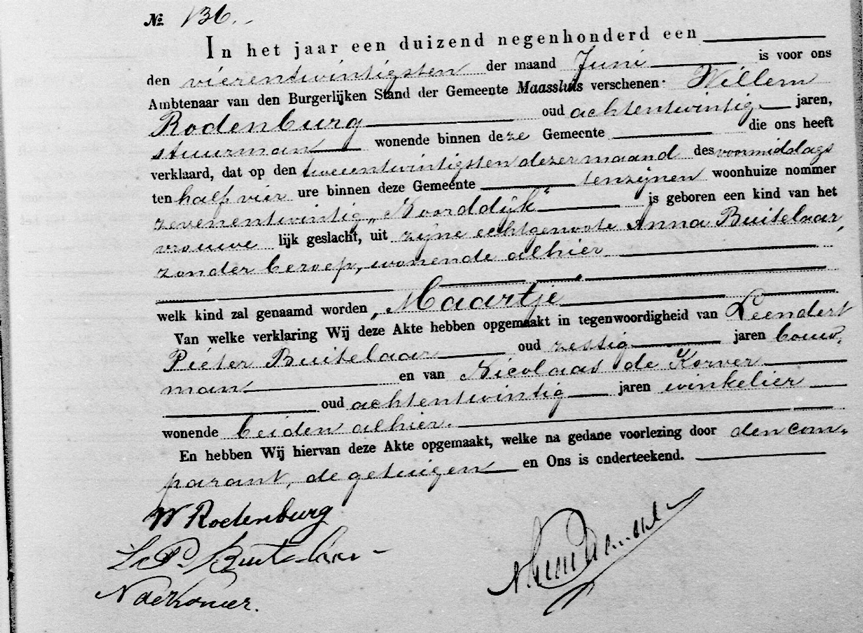 № 136.
In het jaar een duizend negenhonderd een
den vierentwintigsten der maand Juni is voor ons
Ambtenaar van den Burgerlijken Stand der Gemeente Maassluis verschenen: Willem
Rodenburg oud achtentwintig jaren,
stuurman wonende binnen deze Gemeente die ons heeft
verklaard, dat op den tweeentwintigsten dezer maand des voormiddags
ten half vier ure binnen deze Gemeente tenzijnen woonhuize nommer
zevenentwintig „Noorddijk" is geboren een kind van het
vrouwe lijk geslacht, uit zijne echtgenoote Anna Buitelaar,
zonder beroep, wonende alhier
welk kind zal genaamd worden „Maartje
Van welke verklaring Wij deze Akte hebben opgemaakt in tegenwoordigheid van Leendert
Pieter Buitelaar oud zestig jaren bouw-
man en van Nicolaas de Korver
oud achtentwintig jaren winkelier
wonende beiden alhier.
En hebben Wij hiervan deze Akte opgemaakt, welke na gedane voorlezing door den com-
parant, de getuigen en Ons is onderteekend.
W Rodenburg
L. P. Buitelaar
N de Korver.